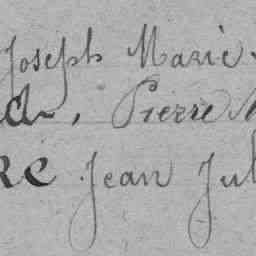 Joseph Marie
, Pierre M
RE Jean Jul